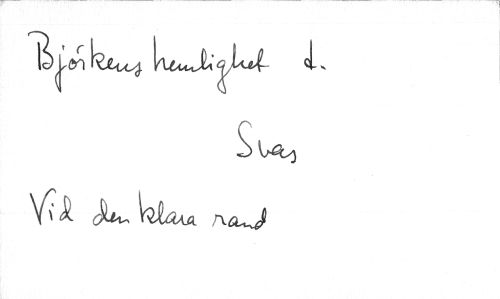 Björkens hemlighet d.
Svas
Vid den klara rand